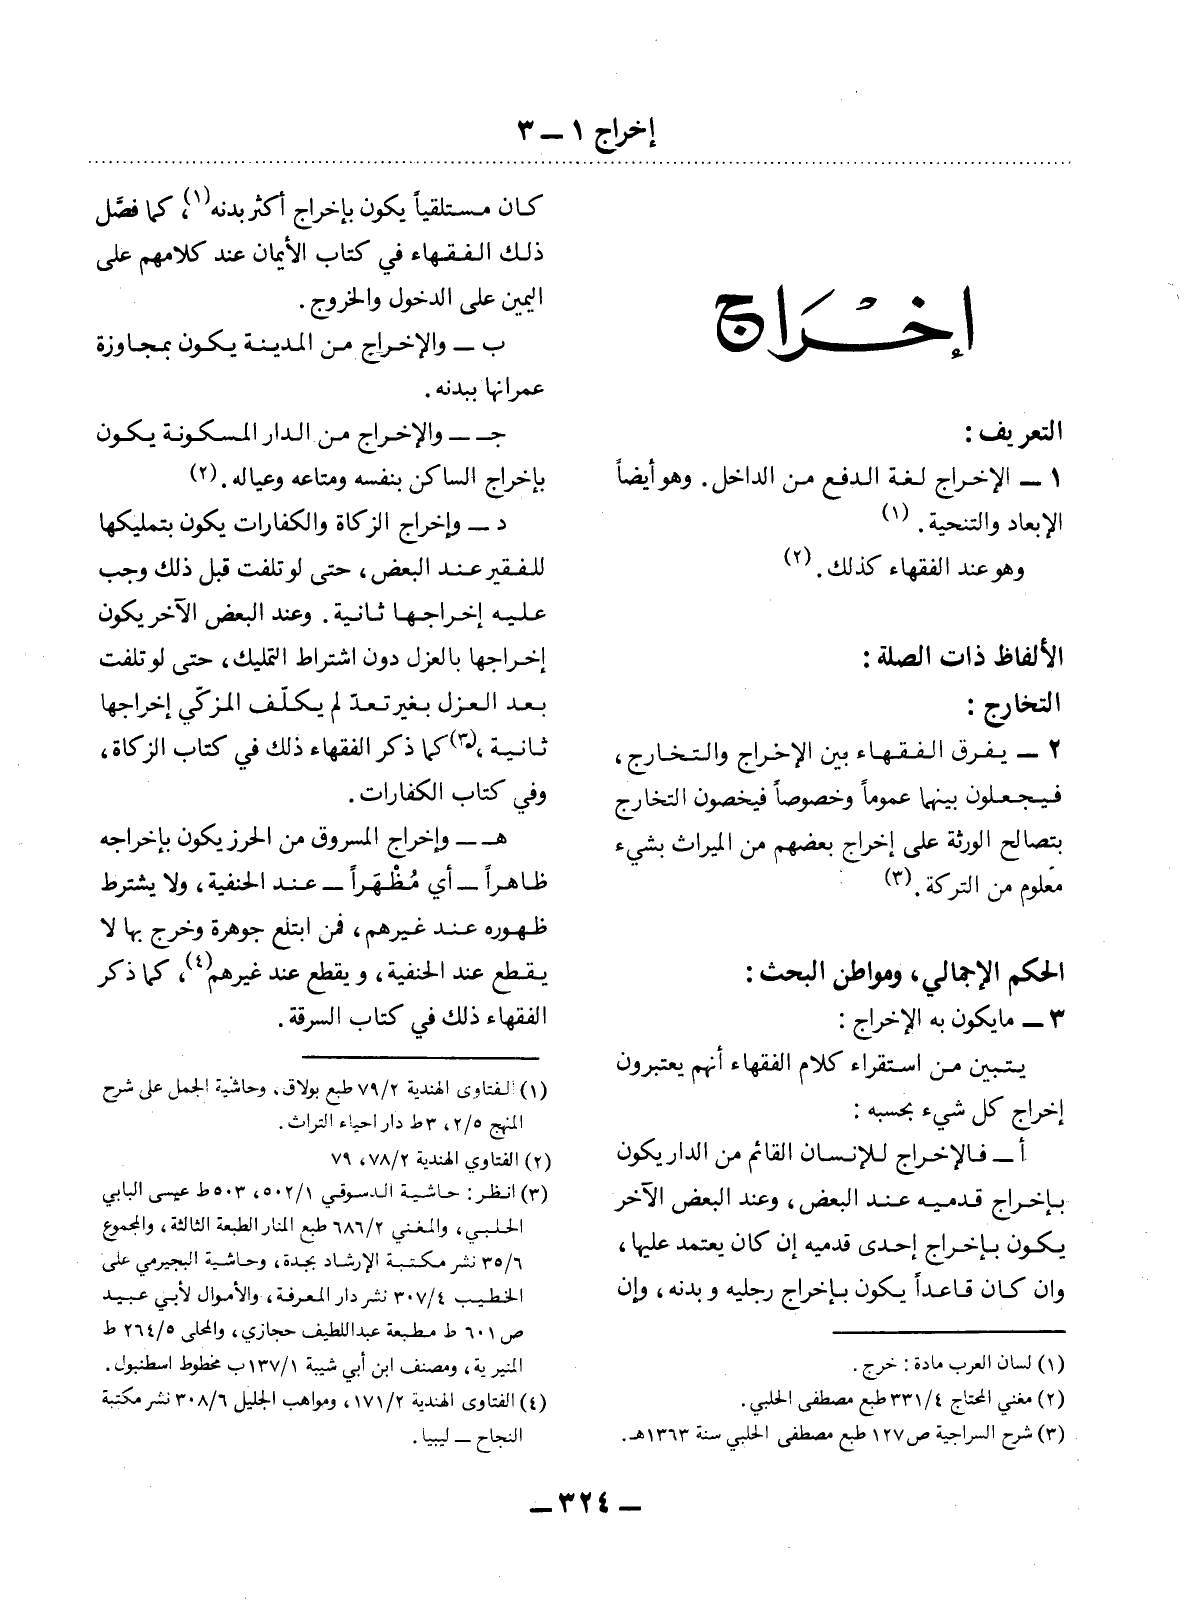 إخراج ١ — ٣
إخْرَاج
التعريف :
١ — الإخراج لغة الدفع من الداخل. وهو أيضاً
الإبعاد والتنحية. (١)
وهو عند الفقهاء كذلك. (٢)
الألفاظ ذات الصلة :
التخارج :
٢ — يفرق الفقهاء بين الإخراج والتخارج،
فيجعلون بينها عموماً وخصوصاً فيخصون التخارج
بتصالح الورثة على إخراج بعضهم من الميراث بشيء
معلوم من التركة. (٣)
الحكم الإجمالي، ومواطن البحث :
٣ — مايكون به الإخراج :
يتبين من استقراء كلام الفقهاء أنهم يعتبرون
إخراج كل شيء بحسبه :
أ — فالإخراج للإنسان القائم من الدار يكون
بإخراج قدميه عند البعض، وعند البعض الآخر
يكون بإخراج إحدى قدميه إن كان يعتمد عليها،
وان كان قاعداً يكون بإخراج رجليه وبدنه، وإن
(١) لسان العرب مادة : خرج.
(٢) مغني المحتاج ٣٣١/٤ طبع مصطفى الحلبي.
(٣) شرح السراجية ص١٢٧ طبع مصطفى الحلبي سنة ١٣٦٣هـ.
كان مستلقياً يكون بإخراج أكثر بدنه(١)، كما فصَّل
ذلك الفقهاء في كتاب الأيمان عند كلامهم على
اليمين على الدخول والخروج.
ب — والإخراج من المدينة يكون بمجاوزة
عمرانها ببدنه.
جـ — والإخراج من الدار المسكونة يكون
بإخراج الساكن بنفسه ومتاعه وعياله. (٢)
د — وإخراج الزكاة والكفارات يكون بتمليكها
للفقير عند البعض، حتى لو تلفت قبل ذلك وجب
عليه إخراجها ثانية. وعند البعض الآخر يكون
إخراجها بالعزل دون اشتراط التمليك، حتى لو تلفت
بعد العزل بغير تعدّ لم يكلّف المزكّي إخراجها
ثانية،(٣) كما ذكر الفقهاء ذلك في كتاب الزكاة،
وفي كتاب الكفارات.
هـ — وإخراج المسروق من الحرز يكون بإخراجه
ظاهراً — أي مُظْهَراً — عند الحنفية، ولا يشترط
ظهوره عند غيرهم، فمن ابتلع جوهرة وخرج بها لا
يقطع عند الحنفية، ويقطع عند غيرهم(٤)، كما ذكر
الفقهاء ذلك في كتاب السرقة.
(١) الفتاوى الهندية ٧٩/٢ طبع بولاق، وحاشية الجمل على شرح
المنهج ٢/٥، ٣ ط دار احياء التراث.
(٢) الفتاوي الهندية ٧٨/٢، ٧٩
(٣) انظر : حاشية الدسوقي ٥٠٢/١، ٥٠٣ ط عيسى البابي
الحلبي، والمغني ٦٨٦/٢ طبع المنار الطبعة الثالثة، والمجموع
٣٥/٦ نشر مكتبة الإرشاد بجدة، وحاشية البجيرمي على
الخطيب ٣٠٧/٤ نشر دار المعرفة، والأموال لأبي عبيد
ص ٦٠١ ط مطبعة عبداللطيف حجازي، والمحلى ٢٦٤/٥ ط
المنيرية، ومصنف ابن أبي شيبة ١٣٧/١ب مخطوط اسطنبول.
(٤) الفتاوى الهندية ١٧١/٢، ومواهب الجليل ٣٠٨/٦ نشر مكتبة
النجاح — ليبيا.
— ٣٢٤ —